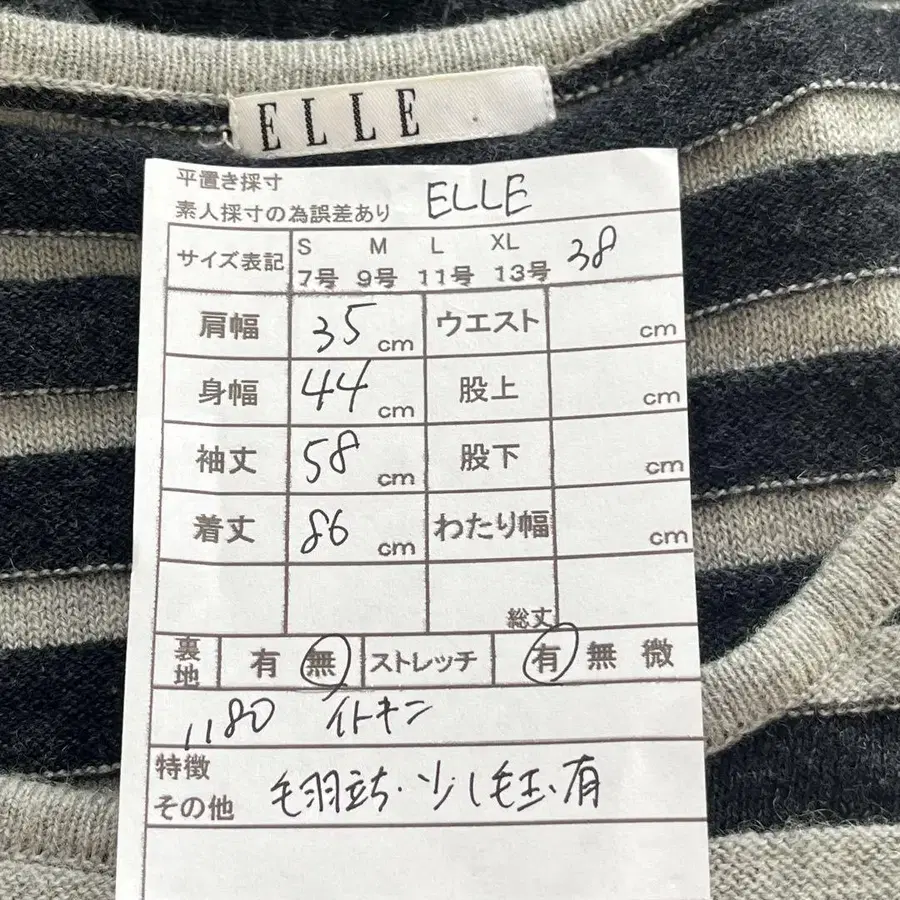 ELLE
平置き採寸
素人採寸の為誤差あり ELLE
サイズ表記 S M L XL 38
7号 9号 11号 13号
肩幅 35 cm ウエスト cm
身幅 44 cm 股上 cm
袖丈 58 cm 股下 cm
着丈 86 cm わたり幅 cm
総丈
裏地 有 無 ストレッチ 有 無 微
1180 イトキン
特徴
その他 毛羽立ち・少し毛玉有